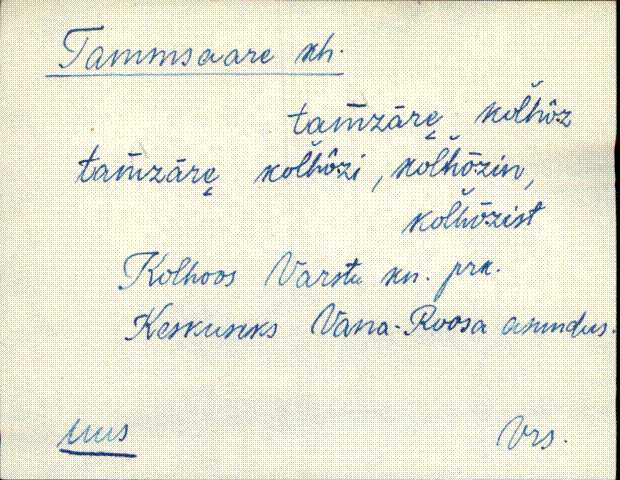 Tammsaare kh.
tam̄zārę kol̆hōz
tam̄zārę kol̆hôzi, kol̆hōzin,
kol̆hōzist
Kolhoos Varstu kn. prk.
Keskuseks Vana-Roosa asundus.
uus Vrs.